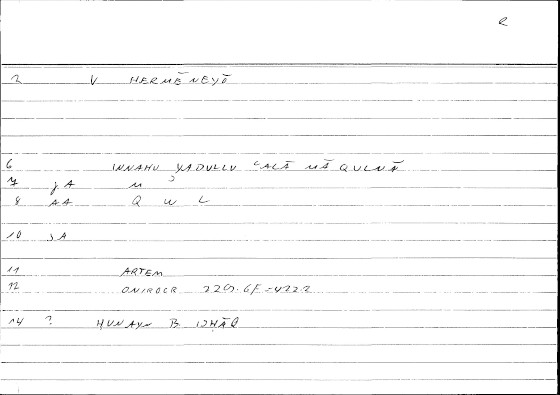 R
2 V HERMĒNEYŌ
6 INNAHU YADULLU ʿALĀ MĀ QULNĀ
7 JA M
8 AA Q W L
10 JA
11 ARTEM
12 ONIROCR
14 ? HUNAYN B ISHĀQ